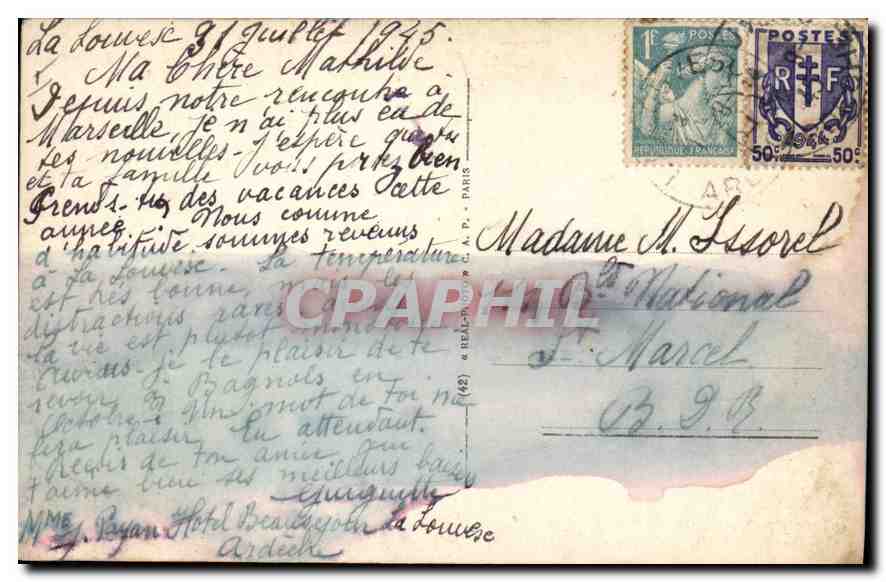 La Louvesc 21 Juillet 1945.
Ma Chère Mathilde
Depuis notre rencontre à
Marseille, je n'ai plus eu de
tes nouvelles - J'espère que
et ta famille vous bien
Prends-tu des vacances cette
année. Nous comme
d'habitude sommes revenus
à La Louvesc. La température
est très bonne, mais les
distractions rares
la vie est plutôt
je le plaisir de te
revoir à Bagnols en
Octobre. Un mot de toi me
fera plaisir, En attendant.
reçois de ton amie qui
t'aime bien ses meilleurs baisers
Mme J. Hotel Beauséjour La Louvesc
Ardèche
(42) « REAL-PHOTO » C. A. P. - PARIS
1F POSTES
REPUBLIQUE FRANÇAISE
POSTES
R F
1944
50c 50c
Madame M. Issorel
Rte National
St Marcel
B. D. R.
CPAPHIL